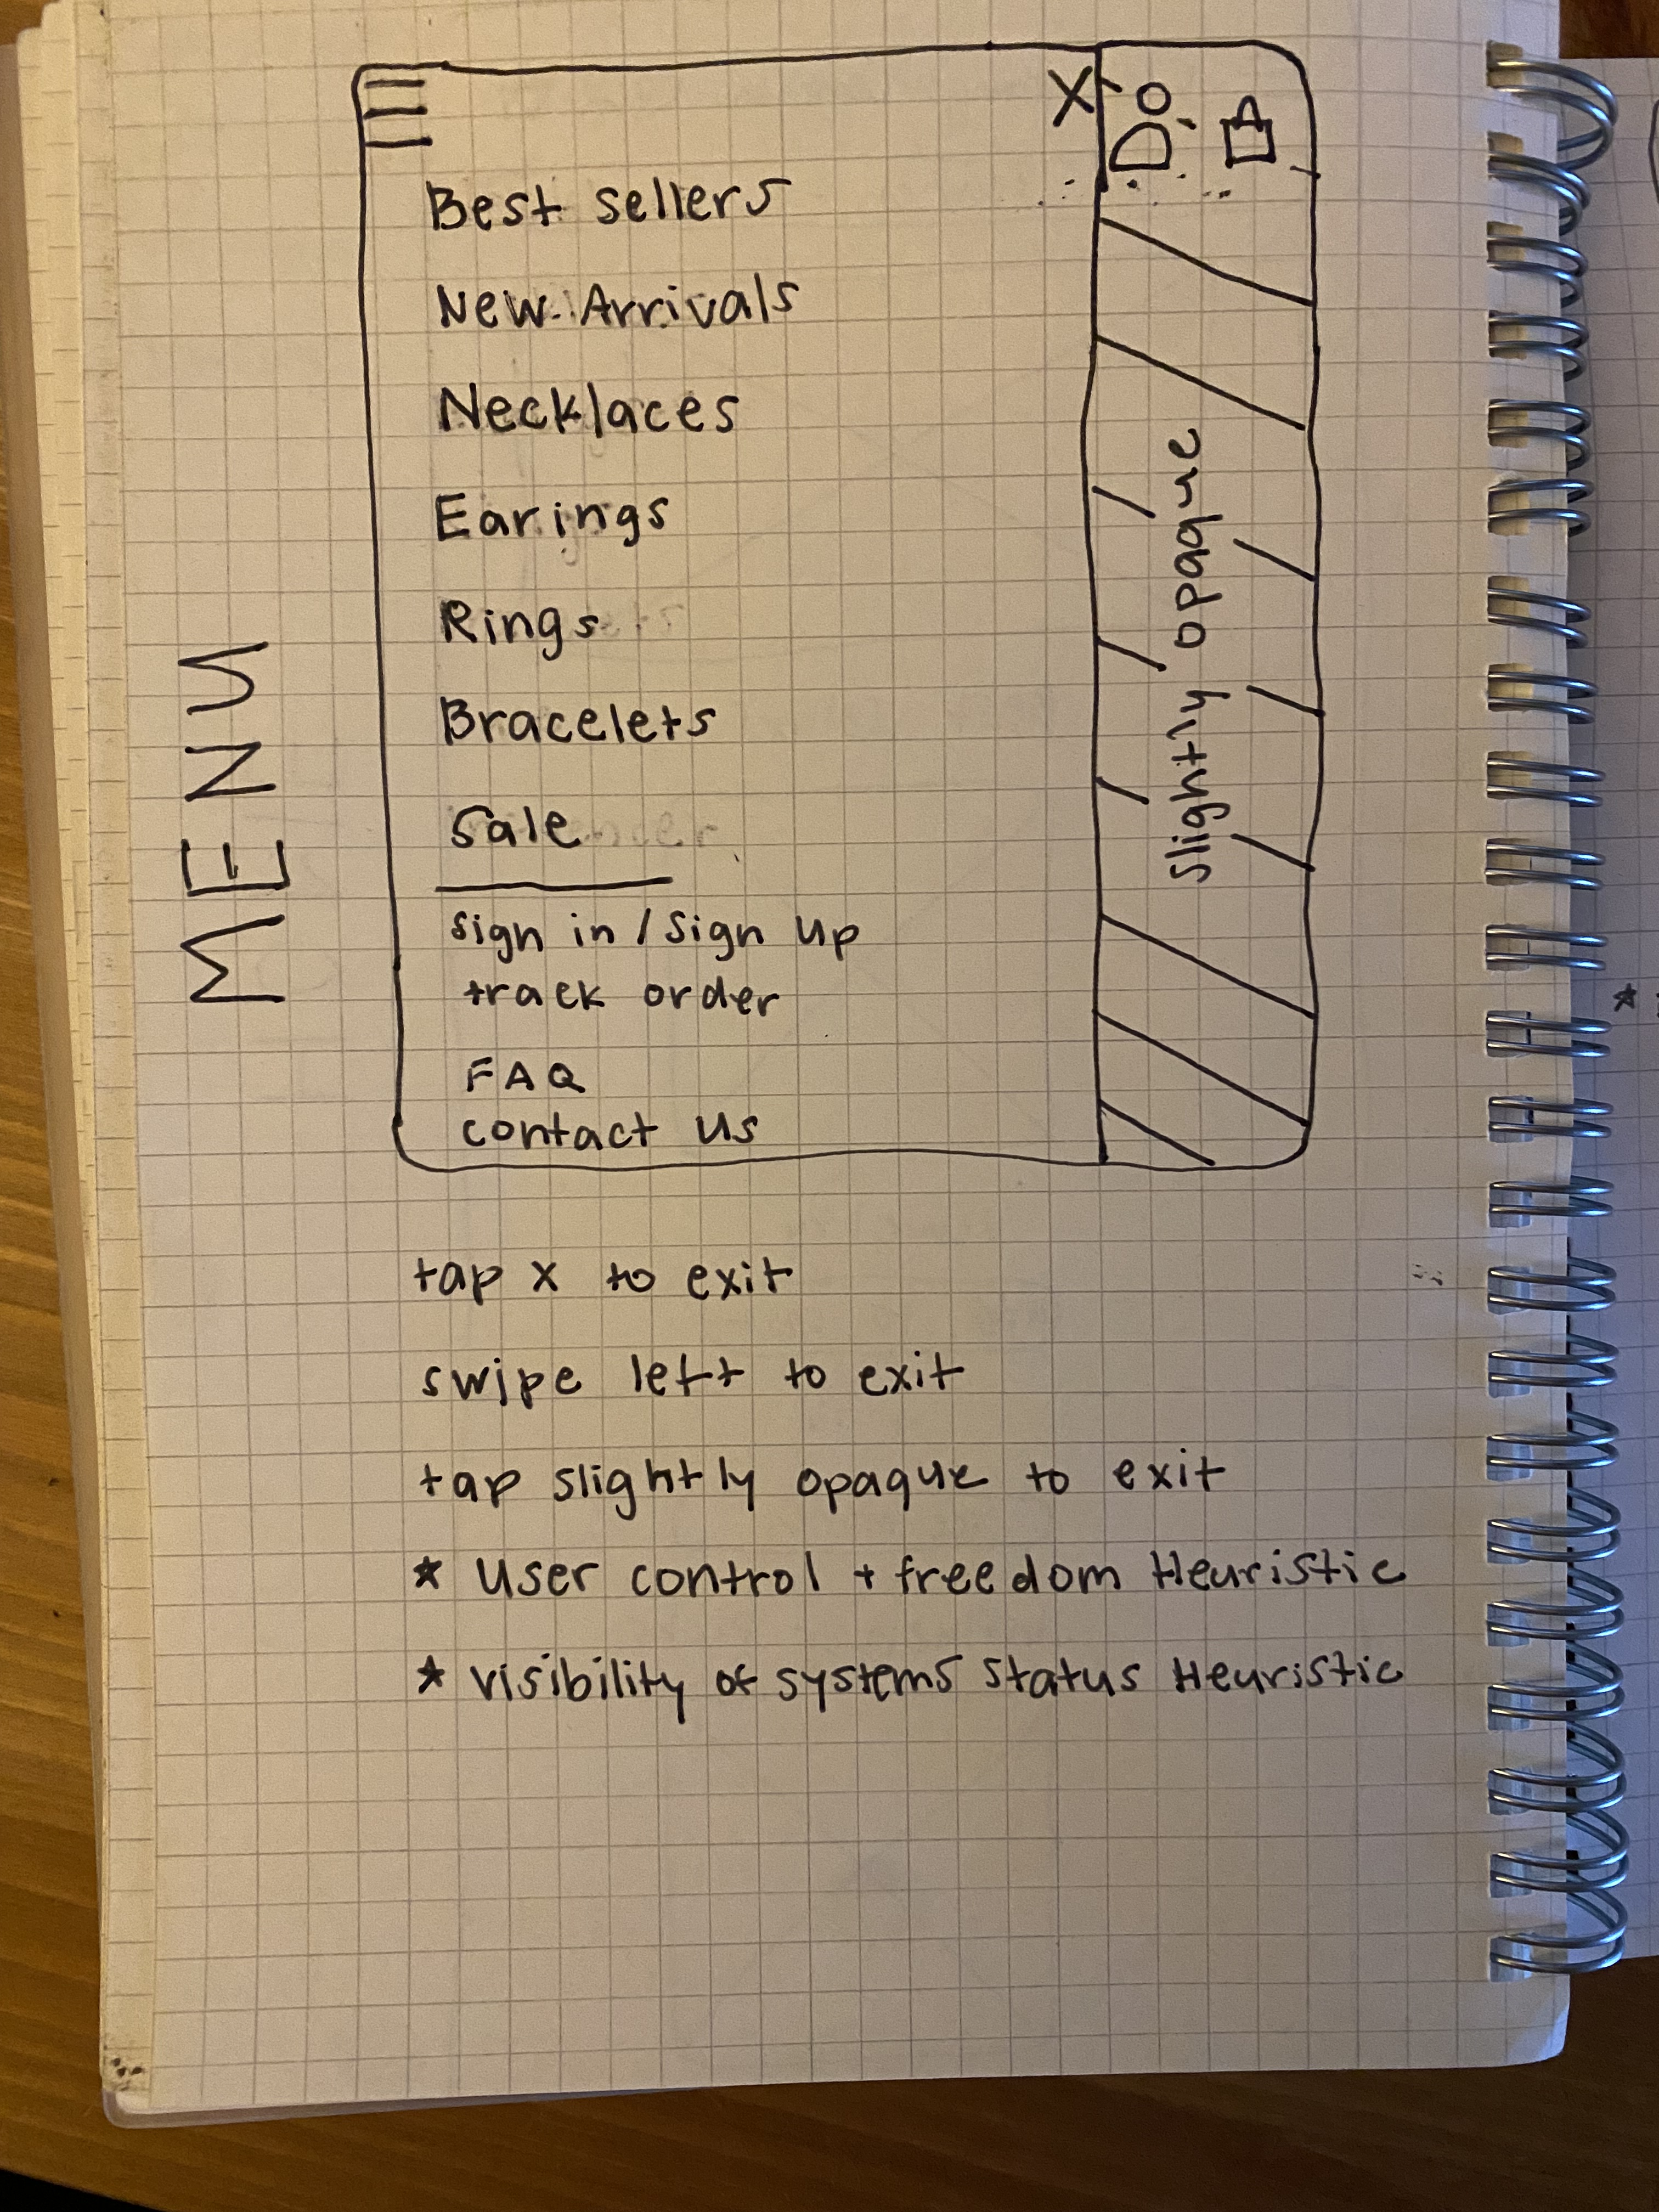 MENU
X
Best sellers
New Arrivals
Necklaces
Earings
Rings
Bracelets
Sale
sign in / sign up
track order
FAQ
contact us
slightly opaque
tap x to exit
swipe left to exit
tap slightly opaque to exit
* user control + freedom Heuristic
* visibility of systems status Heuristic
*